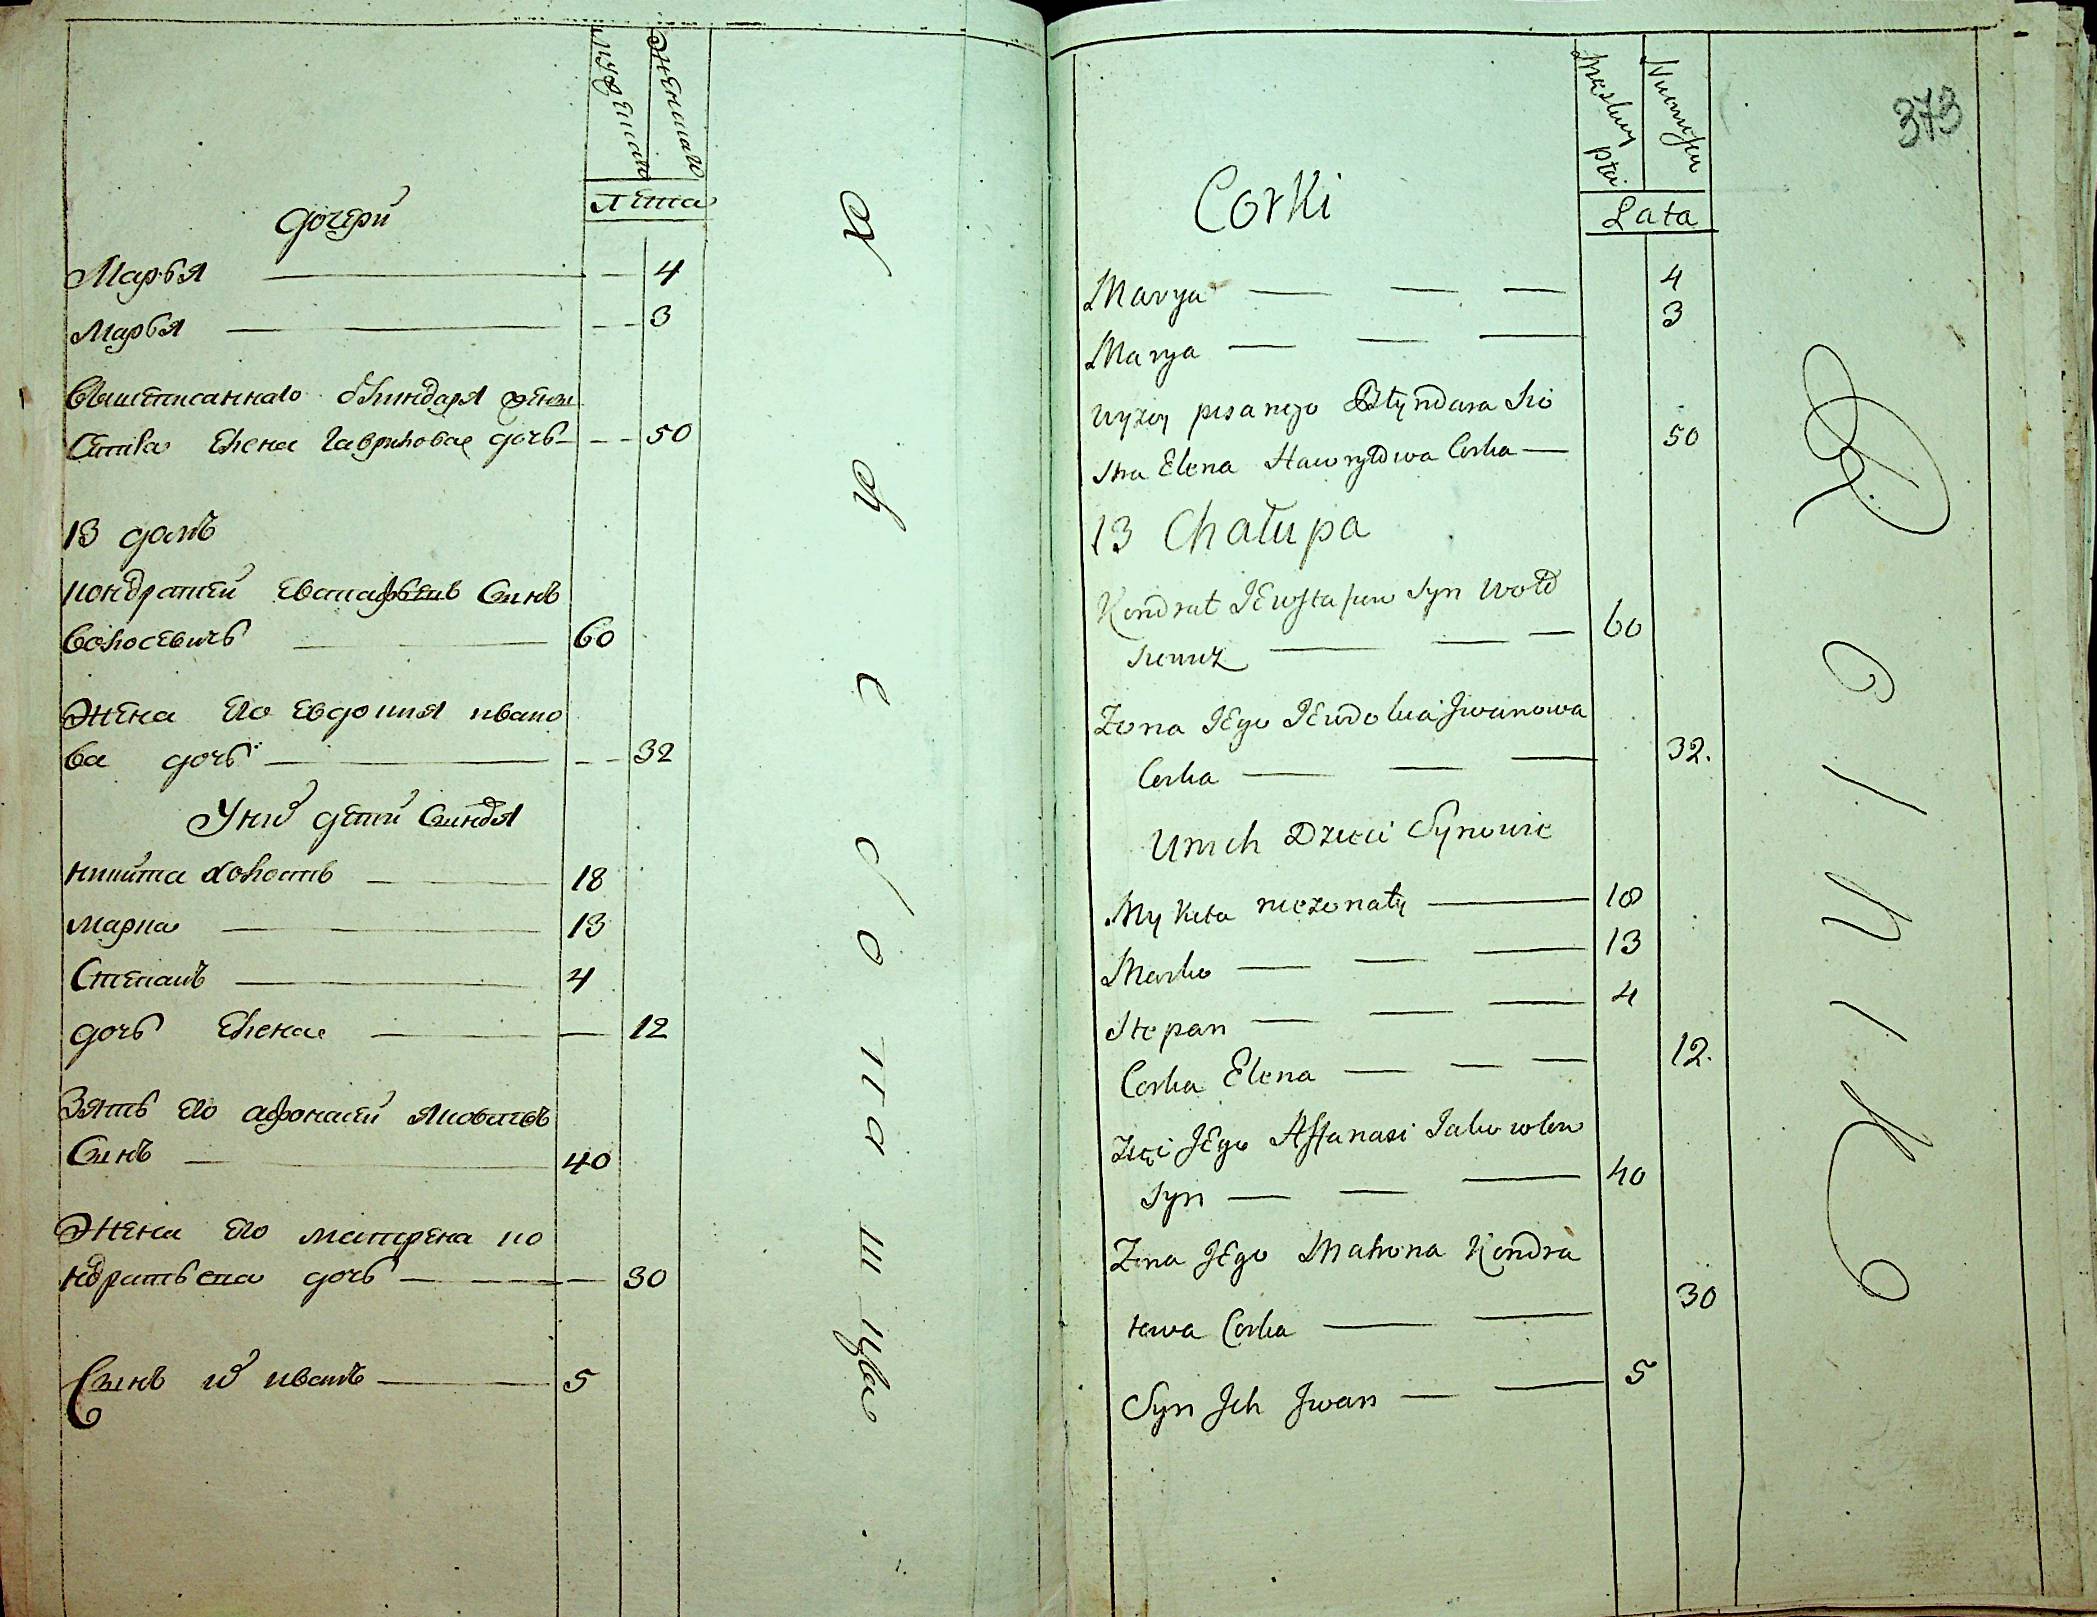 мужескаго
женскаго
лета
дочери
Марья 4
Марья 3
Вышеписаннаго Блиндаря жены
Сестра Елена Гаврилова дочь 50
13 домъ
кондратей Евстафьевъ Сынъ
Волосевичъ 60
Жена Его Евдокия ивано
ва дочь 32
У них дети Сыновя
никита холостъ 18
марка 13
Степанъ 4
дочь Елена 12
Зять Его афонасей Яковлевъ
Сынъ 40
Жена Его матрена ко
ндратьева дочь 30
Сынъ их иванъ 5
373
Męskiey płci
Lata
Corki
Marya 4
Marya 3
wyżey pisanego Błyndara Sio
stra Elena Hawryłowa Corka 50
13 Chałupa
Kondrat JEwstafiew Syn Woło
siewicz 60
Zona JEgo JEwdokia Jwanowa
Corka 32.
U nich Dzieci Synowie
Mykita niezonaty 18
Marko 13
Stepan 4
Corka Elena 12.
Zięć JEgo Affanasi Jakowlew
Syn 40
Zona JEgo Matrona Kondra
tewa Corka 30
Syn Jch Jwan 5